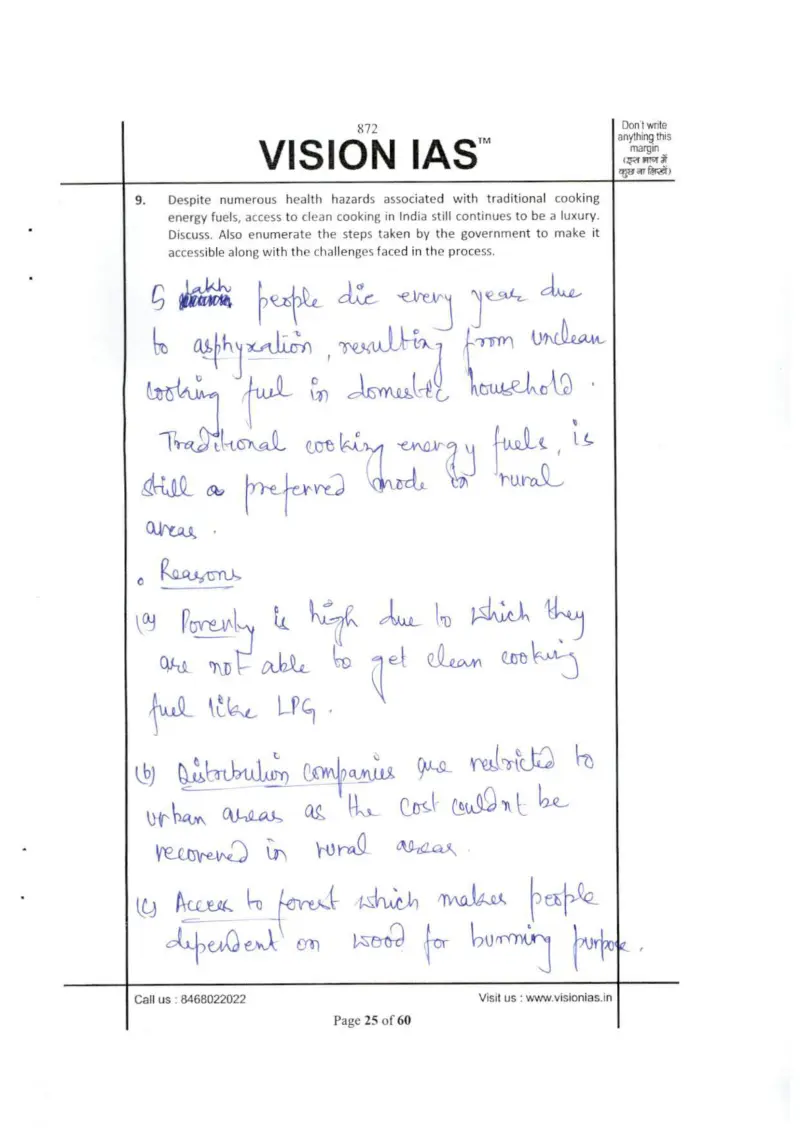 872
VISION IAS™
Don't write
anything this
margin
(इस भाग में
कुछ ना लिखें)
9. Despite numerous health hazards associated with traditional cooking
energy fuels, access to clean cooking in India still continues to be a luxury.
Discuss. Also enumerate the steps taken by the government to make it
accessible along with the challenges faced in the process.
5 lakh people die every year due
to asphyxation, resulting from unclean
cooking fuel in domestic household.
Traditional cooking energy fuels, is
still a preferred mode in rural
areas.
Reasons
(a) Poverty is high due to which they
are not able to get clean cooking
fuel like LPG.
(b) Distribution Companies are restricted to
urban areas as the cost couldn't be
recovered in rural areas.
(c) Access to forest which makes people
dependent on wood for burning purpose.
Call us : 8468022022
Visit us : www.visionias.in
Page 25 of 60